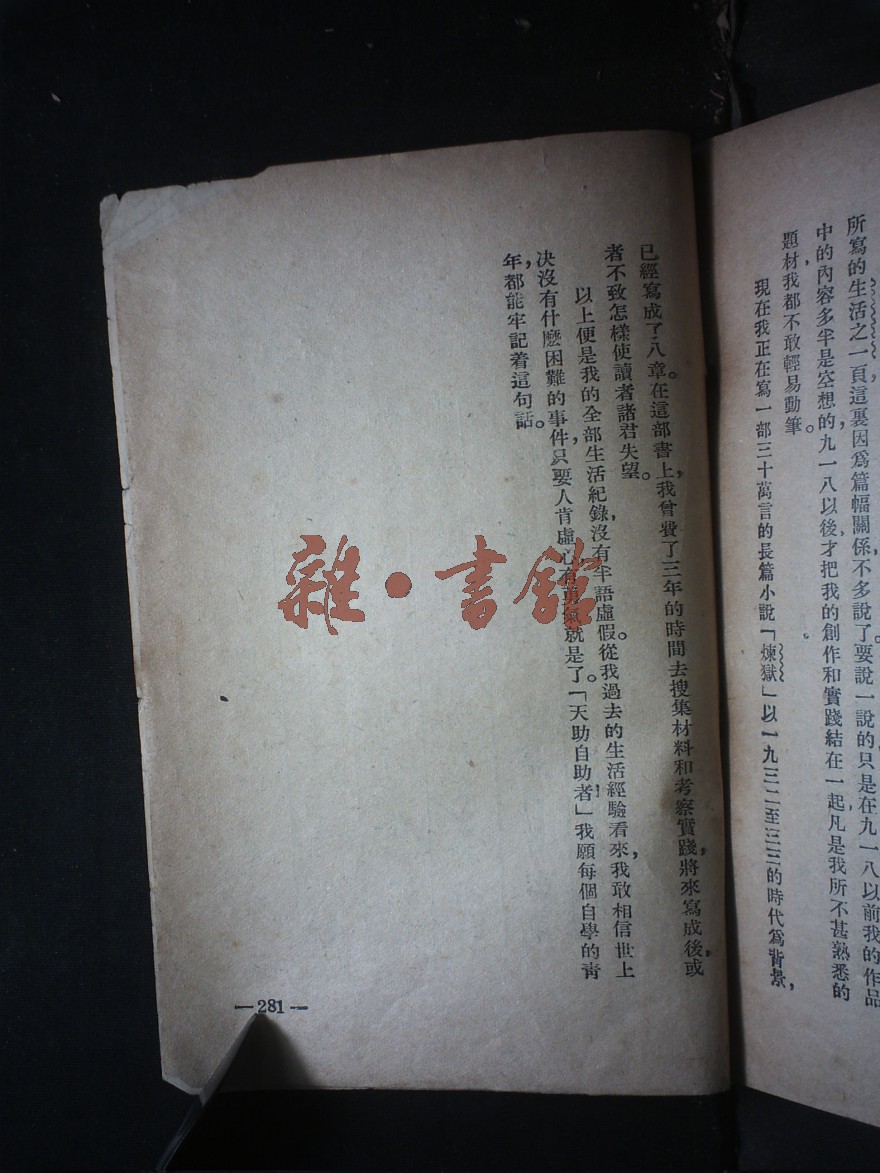 所寫的生活之一頁這裏因爲篇幅關係，不多說了。要說一說的，只是在九一八以前，我的作品
中的內容多半是空想的，九一八以後，才把我的創作和實踐結在一起，凡是我所不甚熟悉的
題材，我都不敢輕易動筆。
現在我正在寫一部三十萬言的長篇小說「煉獄」以一九三二至三三的時代爲背景，
已經寫成了八章。在這部書上，我曾費了三年的時間去搜集材料和考察實踐，將來寫成後，或
者不致怎樣使讀者諸君失望。
以上便是我的全部生活紀錄，沒有半語虛假。從我過去的生活經驗看來，我敢相信世上
決沒有什麽困難的事件，只要人肯虛心有勇氣就是了。「天助自助者」我願每個自學的青
年，都能牢記着這句話。
—281—
雜·書館